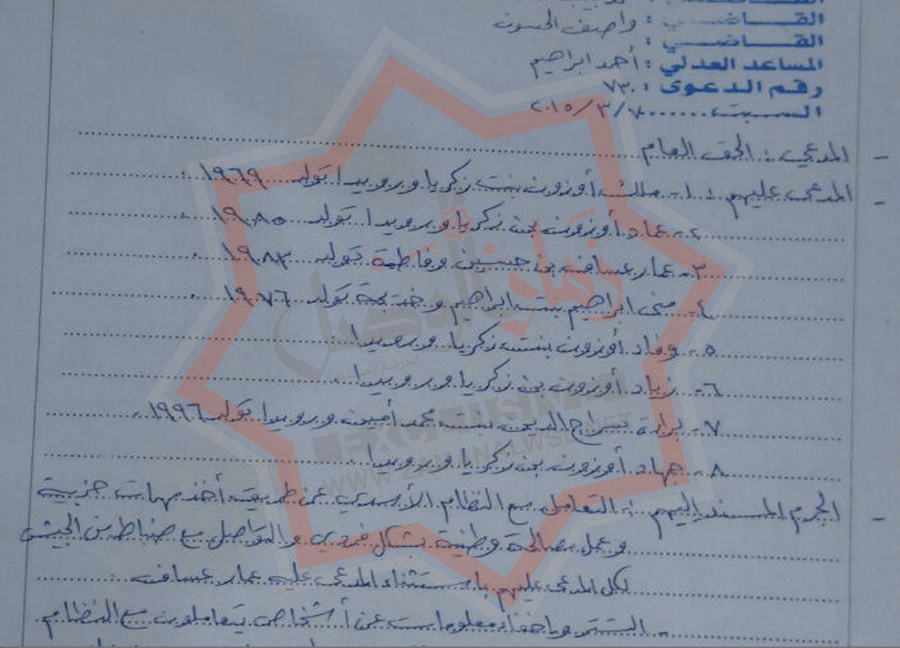 القاضي : واصف الحسون
القاضي :
المساعد العدلي : أحمد ابراهيم
رقم الدعوى : ٧٣٠
السبت ٧/٣/٢٠١٥
- المدعي : الحق العام
- المدعى عليهم : ١- ملك أوزون بنت زكريا و رويدا تولد ١٩٦٩ .
٢- عماد أوزون بن زكريا و رويدا تولد ١٩٨٥ .
٣- عمار عساف بن حسين وفاطمة تولد ١٩٨٣ .
٤- منى ابراهيم بنت ابراهيم وخديجة تولد ١٩٧٦ .
٥- وفاد أوزون بنت زكريا و رويدا .
٦- زياد أوزون بن زكريا و رويدا .
٧- براءة سراج الدين بنت محمد أمين و رويدا تولد ١٩٩٦ .
٨- جهاد أوزون بن زكريا و رويدا .
- الجرم المسند إليهم : التعامل مع النظام الأسدي عن طريق أخذ مهمات حزبية
وعمل مصالحة وطنية بشكل فردي والتواصل مع ضباط من الجيش
لكل المدعى عليهم باستثناء المدعى عليه عمار عساف .
- التستر وإخفاء معلومات عن أشخاص يتعاملون مع النظام
زمان الوصل
EXCLUSIVE
WWW.ZAMANALWSL.NET